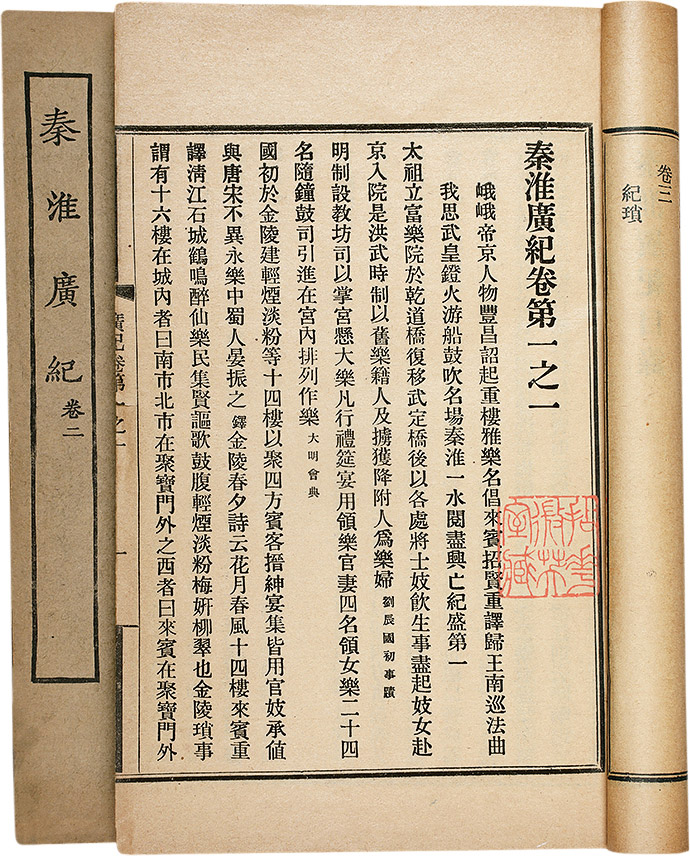 卷三
紀瑣
秦淮廣紀卷第一之一
峨峨帝京人物豐昌詔起重樓雅樂名倡來賓招賢重譯歸王南巡法曲
我思武皇鐙火游船鼓吹名場秦淮一水閱盡興亡紀盛第一
太祖立富樂院於乾道橋復移武定橋後以各處將士妓飲生事盡起妓女赴
京入院是洪武時制以舊樂籍人及擄獲降附人爲樂婦 劉辰國初事蹟
明制設教坊司以掌宮懸大樂凡行禮筵宴用領樂官妻四名領女樂二十四
名隨鐘鼓司引進在宮內排列作樂 大明會典
國初於金陵建輕煙淡粉等十四樓以聚四方賓客搢紳宴集皆用官妓承値
與唐宋不異永樂中蜀人晏振之鐸金陵春夕詩云花月春風十四樓來賓重
譯淸江石城鶴鳴醉仙樂民集賢謳歌鼓腹輕煙淡粉梅妍柳翠也金陵瑣事
謂有十六樓在城內者曰南市北市在聚寶門外之西者曰來賓在聚寶門外
廣紀卷第一之一
一
秦淮廣紀 卷二